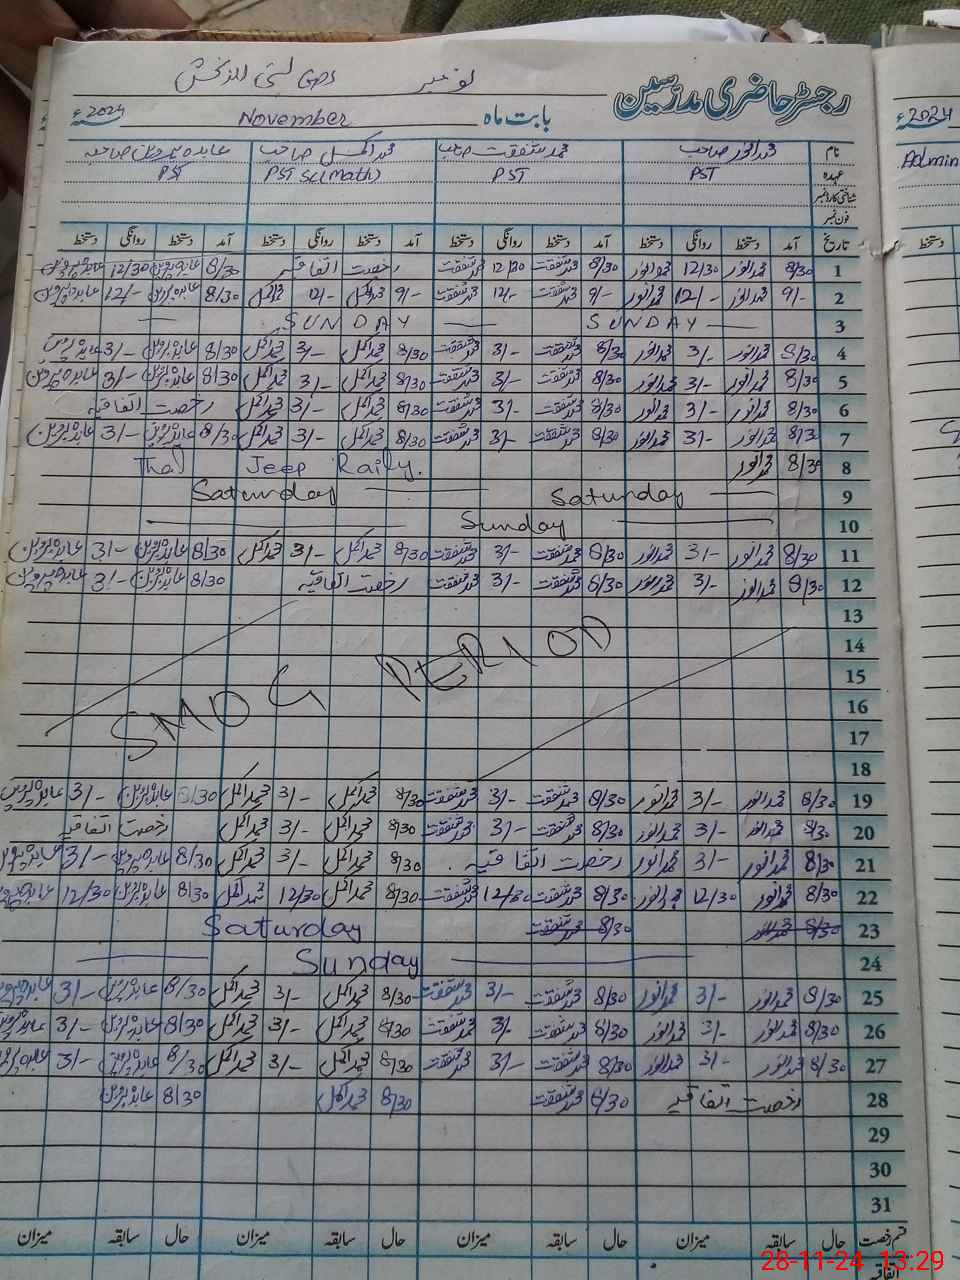 نومبر GPS بستی اللہ بخش
رجسٹر حاضری مدرسین
بابت ماہ November 2024ء
2024ء
نام محمد انور صاحب محمد شفقت صاحب محمد اکمل صاحب عابدہ پروین صاحبہ
عہدہ PST PST PST Sc(math) PST
Admin
شناختی کارڈ نمبر
فون نمبر
تاریخ آمد دستخط روانگی دستخط آمد دستخط روانگی دستخط آمد دستخط روانگی دستخط آمد دستخط روانگی دستخط
دستخط
1 8/30 محمد انور 12/30 محمد انور 8/30 محمد شفقت 12/30 محمد شفقت رخصت اتفاقیہ 8/30 عابدہ پروین 12/30 عابدہ پروین
2 9/- محمد انور 12/- محمد انور 9/- محمد شفقت 12/- محمد شفقت 9/- محمد اکمل 12/- محمد اکمل 8/30 عابدہ پروین 12/- عابدہ پروین
3 SUNDAY SUNDAY
4 8/30 محمد انور 3/- محمد انور 8/30 محمد شفقت 3/- محمد شفقت 8/30 محمد اکمل 3/- محمد اکمل 8/30 عابدہ پروین 3/- عابدہ پروین
5 8/30 محمد انور 3/- محمد انور 8/30 محمد شفقت 3/- محمد شفقت 8/30 محمد اکمل 3/- محمد اکمل 8/30 عابدہ پروین 3/- عابدہ پروین
6 8/30 محمد انور 3/- محمد انور 8/30 محمد شفقت 3/- محمد شفقت 8/30 محمد اکمل 3/- محمد اکمل رخصت اتفاقیہ
7 8/3 محمد انور 3/- محمد انور 8/30 محمد شفقت 3/- محمد شفقت 8/30 محمد اکمل 3/- محمد اکمل 8/30 عابدہ پروین 3/- عابدہ پروین
8 8/30 محمد انور Thal Jeep Raily.
9 Saturday Saturday
10 Sunday
11 8/30 محمد انور 3/- محمد انور 8/30 محمد شفقت 3/- محمد شفقت 8/30 محمد اکمل 3/- محمد اکمل 8/30 عابدہ پروین 3/- عابدہ پروین
12 8/30 محمد انور 3/- محمد انور 8/30 محمد شفقت 3/- محمد شفقت رخصت اتفاقیہ 8/30 عابدہ پروین 3/- عابدہ پروین
13
14
SMOG PERIOD
15
16
17
18
19 8/30 محمد انور 3/- محمد انور 8/30 محمد شفقت 3/- محمد شفقت 8/30 محمد اکمل 3/- محمد اکمل 8/30 عابدہ پروین 3/- عابدہ پروین
20 8/30 محمد انور 3/- محمد انور 8/30 محمد شفقت 3/- محمد شفقت 8/30 محمد اکمل 3/- محمد اکمل رخصت اتفاقیہ
21 8/30 محمد انور 3/- محمد انور رخصت اتفاقیہ 8/30 محمد اکمل 3/- محمد اکمل 8/30 عابدہ پروین 3/- عابدہ پروین
22 8/30 محمد انور 12/30 محمد انور 8/30 محمد شفقت 12/30 محمد شفقت 8/30 محمد اکمل 12/30 محمد اکمل 8/30 عابدہ پروین 12/30 عابدہ پروین
23 8/30 محمد انور 8/30 محمد شفقت Saturday
24 Sunday
25 8/30 محمد انور 3/- محمد انور 8/30 محمد شفقت 3/- محمد شفقت 8/30 محمد اکمل 3/- محمد اکمل 8/30 عابدہ پروین 3/- عابدہ پروین
26 8/30 محمد انور 3/- محمد انور 8/30 محمد شفقت 3/- محمد شفقت 8/30 محمد اکمل 3/- محمد اکمل 8/30 عابدہ پروین 3/- عابدہ پروین
27 8/30 محمد انور 3/- محمد انور 8/30 محمد شفقت 3/- محمد شفقت 8/30 محمد اکمل 3/- محمد اکمل 8/30 عابدہ پروین 3/- عابدہ پروین
28 رخصت اتفاقیہ 8/30 محمد شفقت 8/30 محمد اکمل 8/30 عابدہ پروین
29
30
31
قسم رخصت حال سابقہ میزان حال سابقہ میزان حال سابقہ میزان حال سابقہ میزان
اتفاقیہ
28-11-24 13:29